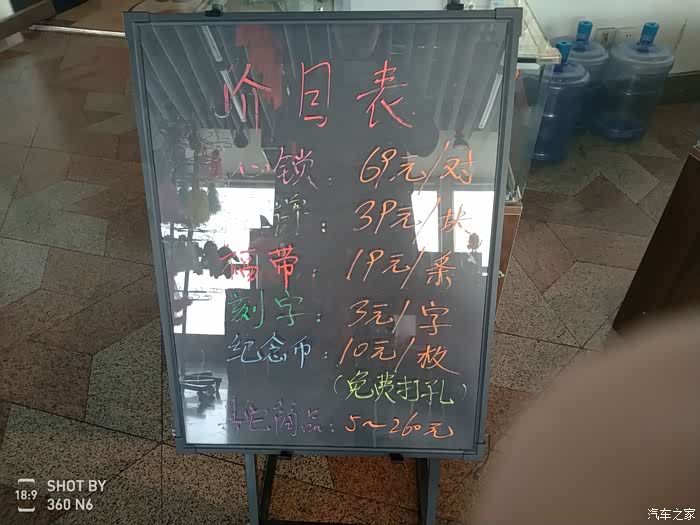 价目表
心锁: 69元/对
牌: 39元/块
福带: 19元/条
刻字: 3元/字
纪念币: 10元/枚
(免费打孔)
其它商品: 5~260元
18:9
SHOT BY
360 N6
汽车之家